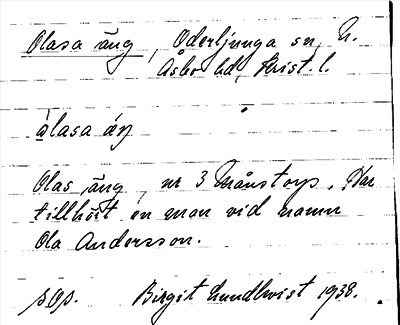 Olasa äng, Oderljunga sn, N.
Åsbo hd, Krist. l.
ọlasa áŋ
Olas äng, nr 3 Månstorp. Har
tillhört en man vid namn
Ola Andersson.
sgs. Birgit Lundkvist 1938.